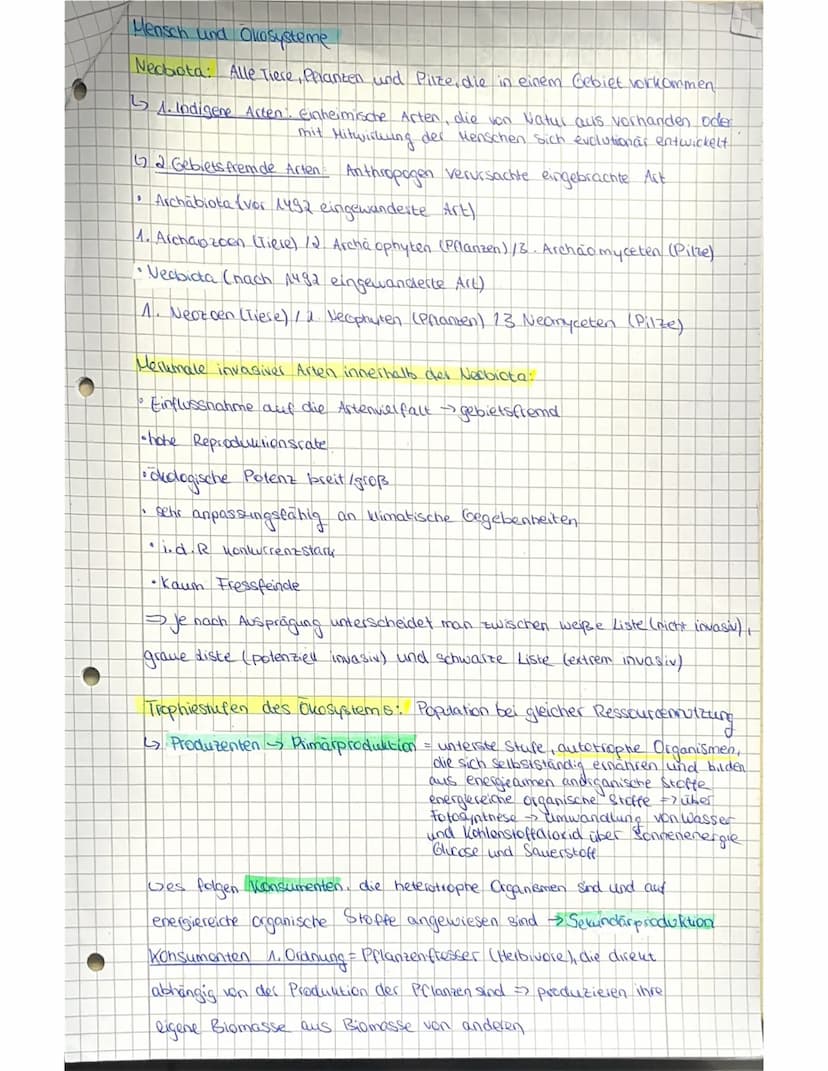 Mensch und Ökosysteme
Neobiota: Alle Tiere, Pflanzen und Pilze, die in einem Gebiet vorkommen
↳ 1. Indigene Arten: Einheimische Arten, die von Natur aus vorhanden oder
mit Mitwirkung des Menschen sich evolutionär entwickelt
↳ 2 Gebietsfremde Arten: Anthropogen verursachte eingebrachte Art
• Archäbiota (vor 1492 eingewanderte Art)
1. Archäozoen (Tiere) / 2 Archäophyten (Pflanzen) / 3. Archäomyceten (Pilze)
• Neobiota (nach 1492 eingewanderte Art)
1. Neozoen (Tiere) / 2 Neophyten (Pflanzen) / 3 Neomyceten (Pilze)
Merkmale invasiver Arten innerhalb der Neobiota:
• Einflussnahme auf die Artenvielfalt → gebietsfremd
• hohe Reproduktionsrate
• ökologische Potenz breit/groß
• sehr anpassungsfähig an klimatische Gegebenheiten
• i.d.R konkurrenzstark
• Kaum Fressfeinde
⇒ Je nach Ausprägung unterscheidet man zwischen weiße Liste (nicht invasiv),
graue Liste (potenziell invasiv) und schwarze Liste (extrem invasiv)
Trophiestufen des Ökosystems: Population bei gleicher Ressourcennutzung
↳ Produzenten → Primärproduktion = unterste Stufe, autotrophe Organismen,
die sich selbstständig ernähren und bilden
aus energiearmen anorganische Stoffe
energiereiche organische Stoffe ⇒ über
Fotosynthese → Umwandlung von Wasser
und Kohlenstoffdioxid über Sonnenenergie
Glucose und Sauerstoff
↳ es folgen Konsumenten, die heterotrophe Organismen sind und auf
energiereiche organische Stoffe angewiesen sind → Sekundärproduktion
Konsumenten 1. Ordnung = Pflanzenfresser (Herbivore), die direkt
abhängig von der Produktion der Pflanzen sind ⇒ produzieren ihre
eigene Biomasse aus Biomasse von anderen